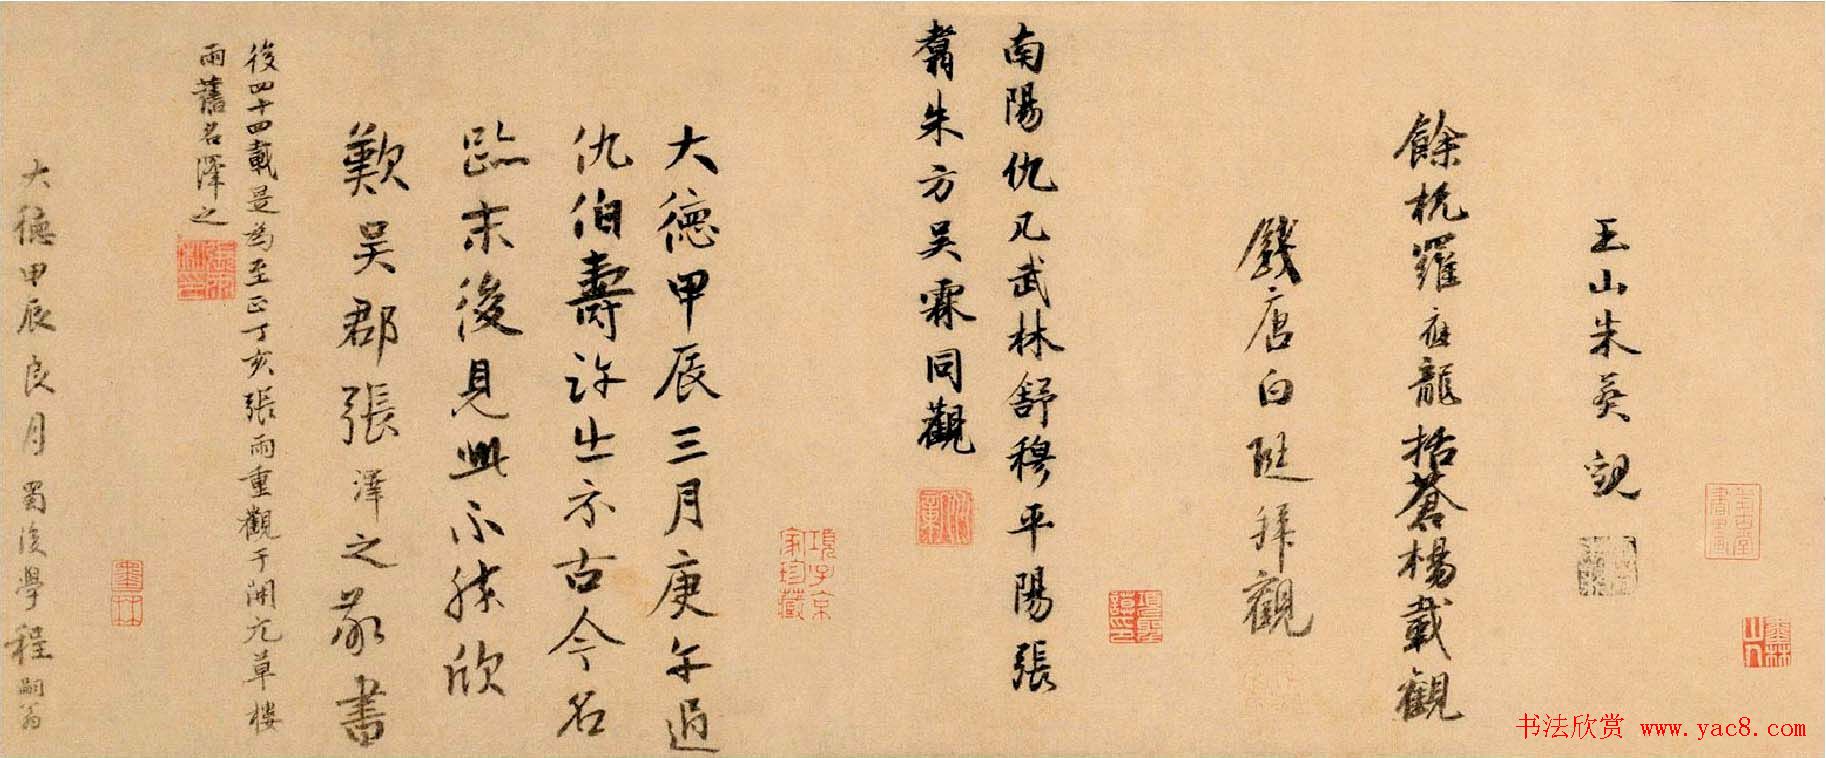 玉山朱英觀
餘杭羅應龍括蒼楊載觀
錢唐白珽拜觀
南陽仇几武林舒穆平陽張
翥朱方吳霖同觀
大德甲辰三月庚午過
仇伯壽許出示古今名
蹟末後見此不勝欣
歎吳郡張澤之敬書
後四十四載是為至正丁亥張雨重觀于開元草樓
雨舊名澤之
大德甲辰良月蜀後學程嗣翁
項子京
家珍藏
墨林
山人
墨林
书法欣赏 www.yac8.com